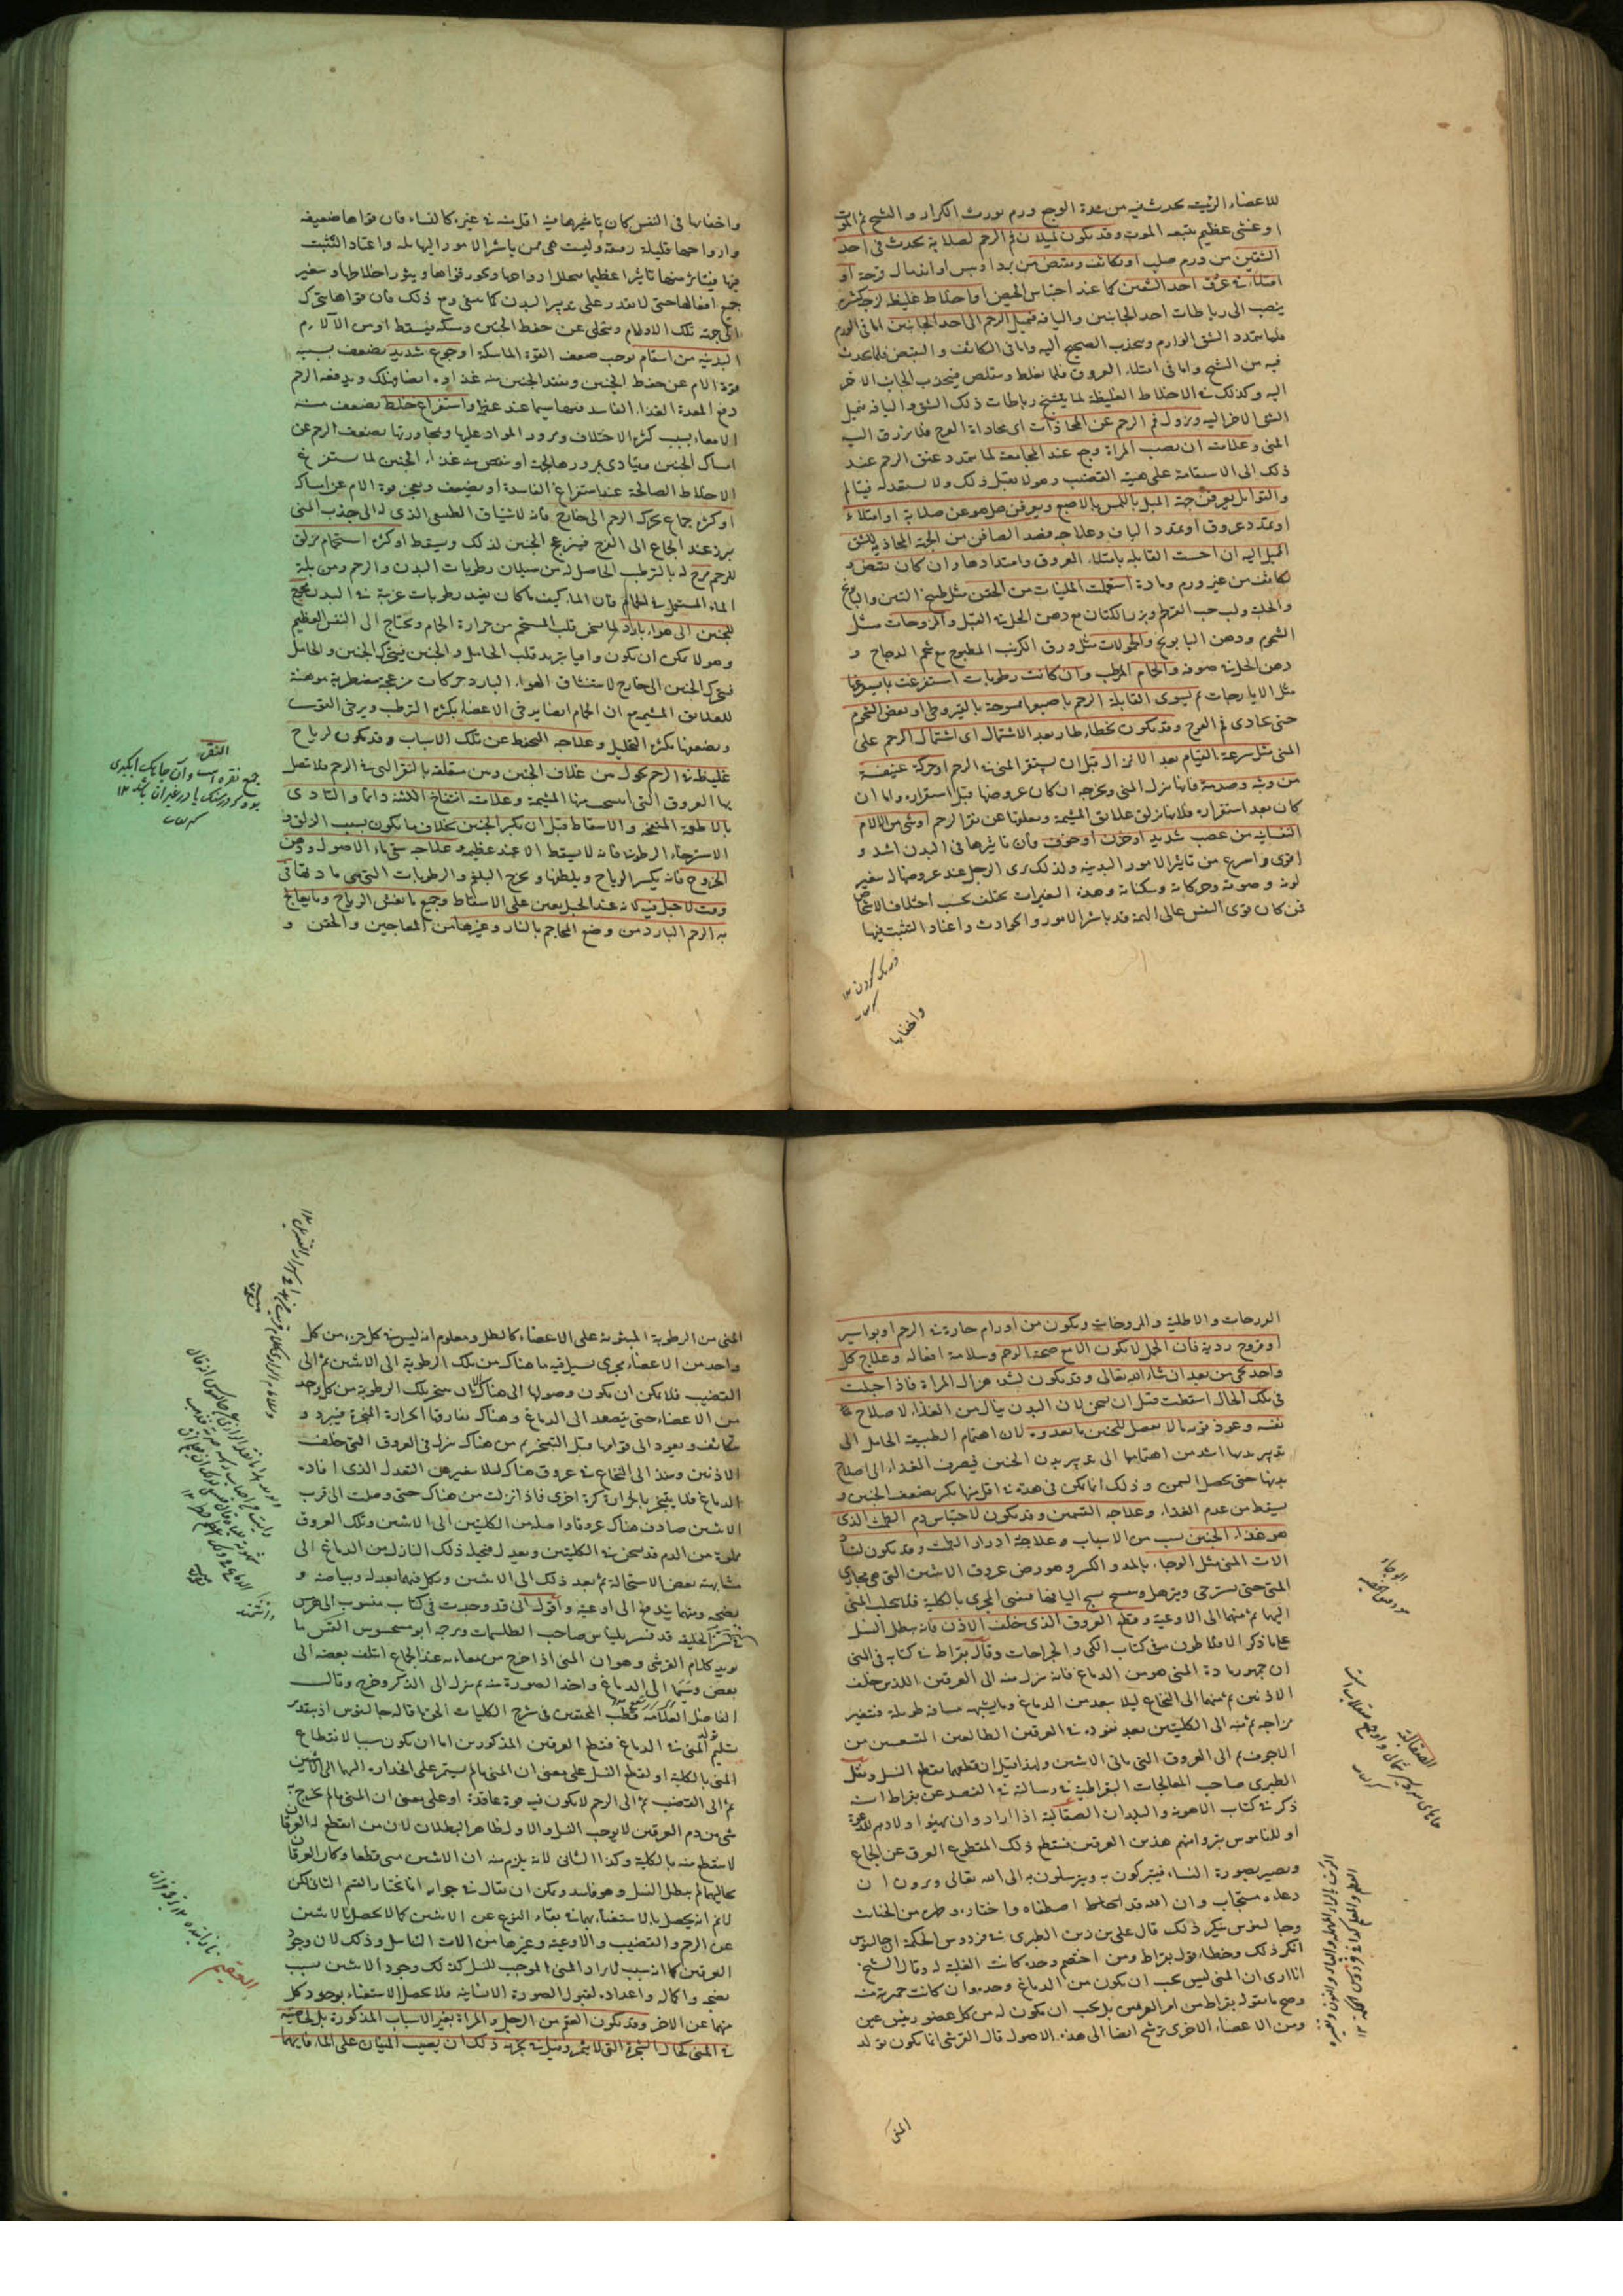 للاعضاء الرئيسة يحدث فيه من شدة الوجع ورم يورث الكزاز والتشنج ثم الموت
او غشى عظيم يتبعه الموت وقد يكون لميلان فم الرحم لصلابة يحدث فى احد
الشقين من ورم صلب او تكاثف وتقبض من برد او يبس او اندمال قرحة او
امتلاء فى عروق احد الشقين كما عند احتباس الحيض او اخلاط غليظة لزجة كثيرة
ينصب الى رباطات احد الجانبين واليافه فيميل الرحم الى احد الجانبين اما فى الورم
فلما يتمدد الشق الوارم وينجذب الصحيح اليه واما فى التكاثف والتقبض فلما يحدث
فيه من التشنج واما فى امتلاء العروق فلما يغلظ ويتقلص فينجذب الجانب الاخر
اليه وكذلك فى الاخلاط الغليظة لما يتشنج رباطات ذلك الشق واليافه فيميل
الشق الاخر اليه ويزول فم الرحم عن المحاذات اى محاذاة الفرج فلا ينزرق اليه
المنى وعلامته ان يصيب المراة وجع عند المجامعة لما يتمدد عنق الرحم عند
ذلك الى الاستقامة على هيئة القضيب وهو لا يقبل ذلك ولا يستعد له فيتالم
والقوابل يعرفن جهة الميل باللمس بالاصبع ويعرفن هل هو عن صلابة او امتلاء
او تمدد عروق او تمدد الياف وعلاجه فصد الصافن من الجهة المحاذية للشق
الميل اليه ان احست القابلة بامتلاء العروق وامتدادها وان كان تقبض و
تكاثف من غير ورم ومادة استعملت الملينات من الحقن مثل طبيخ التين والبابونج
والحلبة ولب حب القرطم وبزر الكتان مع دهن الحل فى القبل والمروخات مثل
الشحوم ودهن البابونج والحمولات مثل ورق الكرنب المطبوخ مع شحم الدجاج و
دهن الحل فى صوفة والحمام المرطب وان كانت رطوبات استفرغت بما يسهلها
مثل الايارجات ثم يسوى القابلة الرحم باصبعها ممسوحة بالقيروطى او بعض الشحوم
حتى يحاذى فم الفرج وقد يكون لخطاء طار بعد الاشتمال اى اشتمال الرحم على
المنى مثل سرعة القيام بعد الانزال قبل ان يستقر المنى فى الرحم او حركة عنيفة
من وثبة وصدمة فانها تزلق المنى وتخرجه ان كان عروضها قبل استقراره واما ان
كان بعد استقراره فلانها تزلق علائق المشيمة ومعلقها عن نقر الرحم او شى من الالام
النفسانية من غضب شديد او حزن او خوف فان تاثيرها فى البدن اشد و
اقوى واسرع من تاثير الامور البدنية ولذلك يرى الرجل عند عروضها له يتغير
لونه وصوته وحركاته وسكناته وهذه التغيرات تختلف بحسب اختلاف الاشخاص
فمن كان قوى النفس عالى الهمة قد باشر الامور والحوادث واعتاد التثبت فيها
واخفايها
واخفايها فى النفس كان تاثيرها فيه اقل منه فى غيره كالنساء فان قواها ضعيفة
وارواحها قليلة رقيقة وليست هى ممن باشر الامور الهائلة واعتاد التثبت
فيها فيتاثر منها تاثيرا عظيما يتحلل ارواحها وتخور قواها ويثور اخلاطها ويتغير
جميع افعالها حتى لا تقدر على تدبير البدن كما ينبغى ومع ذلك فان قواها يتحرك
الى جهة تلك الالام ويتخلى عن حفظ الجنين ومسكه فيسقط او من الآلام
البدنية من اسقام يوجب ضعف القوة الماسكة او جوع شديد يضعف بسببه
قوة الام عن حفظ الجنين ويفقد الجنين منه غذاءه ايضا فيهلك ويدفعه الرحم
دفع المعدة الغذاء الفاسد فيها سيما عند عظمه او استفراغ خلط يضعف منه
الامعاء بسبب كثرة الاختلاف ومرور المواد عليها وبمجاورتها يضعف الرحم عن
امساك الجنين ويتاذى بمرور هالجة او ينقص منه غذاء الجنين لما يستفرغ
الاخلاط الصالحة عند استفراغ الفاسدة او يضعف ويعجز قوة الام عن امساكه
او كثرة جماع يحرك الرحم الى خارج فانه لاشتياقه الطبيعى الذى له الى جذب المنى
يبرز عند الجماع الى الفرج فينزعج الجنين لذلك ويسقط او كثرة استحمام مزلق
للرحم مرخ له بالترطيب الحاصل له من سيلان رطوبات البدن والرحم ومن بلة
الماء المستعمل فى الحمام فان الماء كيف ما كان يفيد رطوبات غريبة فى البدن محوج
للجنين الى هواء بارد لما يسخن قلب المستحم من حرارة الحمام ويحتاج الى التنفس العظيم
وهو لا يمكن ان يكون وافيا بتبريد قلب الحامل والجنين فيتحرك الجنين والحامل
فيتحرك الجنين الى خارج لاستنشاق الهواء البارد حركات مزعجة مضطربة موهنة
للعلائق المشيمة مع ان الحمام ايضا يرخى الاعضاء بكثرة الترطيب ويرخى القوة
ويضعفها بكثرة التحليل وعلاجه التحفظ عن تلك الاسباب وقد يكون لرياح
غليظة فى الرحم يحول من غلاف الجنين ومن تعلقه بالنقر التى فى الرحم فلا تصل
بها العروق التى انتسجت منها المشيمة وعلامته انتفاخ المثانة دائما والتاذى
بالاطعمة المنفخة والاسقاط قبل ان يكبر الجنين بخلاف ما يكون بسبب الزلق و
الاسترخاء الرطوبى فانه لا يسقط الا عند عظمه وعلاجه سقى ماء الاصول ودهن
الخروع فانه يكسر الرياح ويلطفها ويخرج البلغم والرطوبات التى هى مادتها فى
وقت لا حبل فيه لانه عند الحبل يعين على الاسقاط وجميع ما يفش الرياح وما يعالج
به الرحم البارد من وضع المحاجم بالنار وغيرها من المعاجين والحقن و
النقر
الذرورات والاطلية والمروخات ويكون من اورام حارة فى الرحم او بواسير
او قروح ردية فان الحبل لا يكون الا مع صحة الرحم وسلامة افعاله وعلاج كل
واحد يجى من بعد ان شاء الله تعالى وقد يكون لشدة هزال المراة فاذا حبلت
فى تلك الحال اسقطت قبل ان يسمن لان البدن ينال من الغذاء لاصلاح
نفسه وعود قوته ما لا يفضل للجنين ما يغذوه لان اهتمام الطبيعة الحامل الى
تدبير بدنها اشد من اهتمامها الى تدبير بدن الجنين فيصرف الغذاء الى اصلاح
بدنها حتى يحصل السمن وذلك انما يكن فى مدة فى اقل منها يكبر ويضعف الجنين و
يسقط من عدم الغذاء وعلاجه التسمين وقد يكون لاحتباس دم الطمث الذى
هو غذاء الجنين بسبب من الاسباب وعلاجه ادرار الطمث وقد يكون لفساد
الات المنى مثل الوجاء بالمد والكسر وهو رض عروق الانثيين التى هى مجارى
المنى حتى يسترخى ويترهل وينسحج اليافها فينسد المجرى بالكلية فلا يتحلل المنى
اليها ثم منها الى الاوعية وقطع العروق الذى خلف الاذن فانه يبطل النسل
على ما ذكر الافلاطون فى كتاب الكى والجراحات وقال بقراط فى كتابه فى المنى
ان جمهور مادة المنى هو من الدماغ فانه ينزل منه الى العرقين اللذين خلف
الاذنين ثم منهما الى النخاع ليلا يبعد من الدماغ وما يشبهه مسافة طويلة فيتغير
مزاجه ثم منه الى الكليتين بعد نفوذه فى العرقين الطالعين المتشعبين من
الاجوف ثم الى العروق التى تاتى الانثيين ولهذا قيل ان قطعهما يقطع النسل ونقل
الطبرى صاحب المعالجات البقراطية فى رسالة فى الفصد عن بقراط انه
ذكر فى كتاب الاهوية والبلدان الصقالبة اذا ارادوا ان يهيئوا اولادهم للدعوة
او للناموس بتروا منهم هذين العرقين فينقطع ذلك المقطوع العرق عن الجماع
ويصير بصورة النساء فيتبركون به ويتوسلون به الى الله تعالى ويرون ان
دعاءه مستجاب وان الله قد اصطفاه واختاره وطهره من الخبائث
وجالينوس ينكر ذلك قال على بن ربن الطبرى فى فردوس الحكمة ان جالينوس
انكر ذلك وخطاء قول بقراط ومن اختصم وحده كانت الغلبة له وقال الشيخ
انا ارى ان المنى ليس يجب ان يكون من الدماغ وحده وان كانت خميرته منه
وصح ما يقوله بقراط من امر العرقين بل يجب ان يكون له من كل عضو رئيس عين
ومن الاعضاء الاخرى ترشح ايضا الى هذه الاصول قال القرشى انما يكون تولد
المنى
الوجاء
الصقالبة
المنى من الرطوبة المبثوثة على الاعضاء كالطل ومعلوم انه ليس فى كل جزء من كل
واحد من الاعضاء مجرى يسيل فيه ما هناك من تلك الرطوبة الى الانثيين ثم الى
القضيب فلا يمكن ان يكون وصولها الى هناك الا بان يتبخر تلك الرطوبة من كل واحد
من الاعضاء حتى يتصعد الى الدماغ وهناك يفارقها الحرارة المبخرة فيبرد و
يتكاثف ويعود الى قوامها قبل التبخر ثم من هناك ينزل فى العروق التى خلف
الاذنين وينفذ الى النخاع فى عروق هناك ليلا يتغير عن التعدل الذى افاده
الدماغ فلا يتبخر بالحرارة كرة اخرى فاذا نزلت من هناك حتى وصلت الى قرب
الانثيين صادف هناك عروقا واصلة من الكليتين الى الانثيين وتلك العروق
مملوة من الدم قد سخن فى الكليتين ويعدل فيحيله ذلك النازل من الدماغ الى
مشابهته بعض الاستحالة ثم بعد ذلك الى الانثيين ويكمل فيهما تعديله وبياضه و
نضجه ومنهما يندفع الى اوعيته واقول انى قد وجدت فى كتاب منسوب الى هرمس
فى سر الخليقة قد فسر بليناس صاحب الطلسمات وترجمه ابوسسجسوس القس ما
يويد كلام القرشى وهو ان المنى اذا خرج من معادنه عند الجماع ائتلف بعضه الى
بعض وسما الى الدماغ واخذ الصورة منه ثم نزل الى الذكر وخرج وقال
الفاضل العلامة قطب المحققين فى شرح الكليات الحق ما قاله جالينوس اذ بتقدير
تسليم تولد المنى فى الدماغ فقطع العرقين المذكورين اما ان يكون سببا لانقطاع
المنى بالكلية او لقطع النسل على معنى ان المنى ما لم يستمر على انحداره اليها الى الانثيين
ثم الى القضيب ثم الى الرحم لا يكون فيه قوة عاقدة او على معنى ان المنى ما لم يمتزج به
شى من دم العرقين لا يوجب النسل والاول ظاهر البطلان لان من انقطع له العرقان
لا ينقطع منيه بالكلية وكذا الثانى لانه يلزم منه ان الانثيين متى قطعا وكان العرقان
بحالهما لم يبطل النسل وهو فاسد ويمكن ان يقال فى جوابه انا نختار القسم الثانى لكن
لا نم انه يحصل بالاستغناء بهما فى بقاء النوع عن الانثيين كما لا يحصل بالانثيين
عن الرحم والقضيب والاوعية وغيرها من الات التناسل وذلك لان وجود
العرقين كما انه سبب لايراد المنى الموجب للنسل كذلك وجود الانثيين سبب
نضجه واكماله واعداده لقبول الصورة الانسانية فلا يحصل الاستغناء بوجود كل
منهما عن الاخر وقد يكون العقم من الرجل والمراة بغير الاسباب المذكورة بل لخاصية
فى المنى كحال الشجرة التى لا يثمر وقيل فى تجربة ذلك ان يصب المنيان على الماء فايهما
العقيم